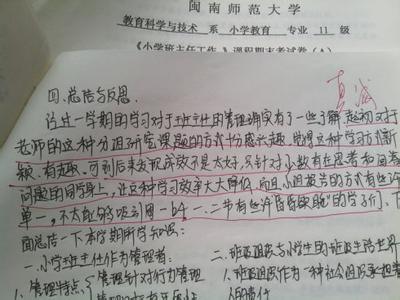 闽南师范大学
教育科学与技术 系 小学教育 专业 11 级
《小学班主任工作 》课程期末考试卷(A)
真诚
四、总结与反思
经过一学期的学习对于班主任的管理确实有了一些了解,起初对于
老师的这种分组研究课题的方式十分感兴趣,觉得这种学习方式新
颖、有趣,可到后来发现成效不是太好,只针对小数有在思考和
问题的同学身上,让这种学习效率大大降低,而且小组报告的方式有些许
单一,不太能够吸引同一b4、一二节有些许昏昏欲睡的学子们、下
面总结一下本学期所学知识:
一.小学班主任作为管理者:
1.管理特点{管理针对行为管理
二.班级组织与小学生的班级生活世界
1.班级组织作为一种社会组织承担着